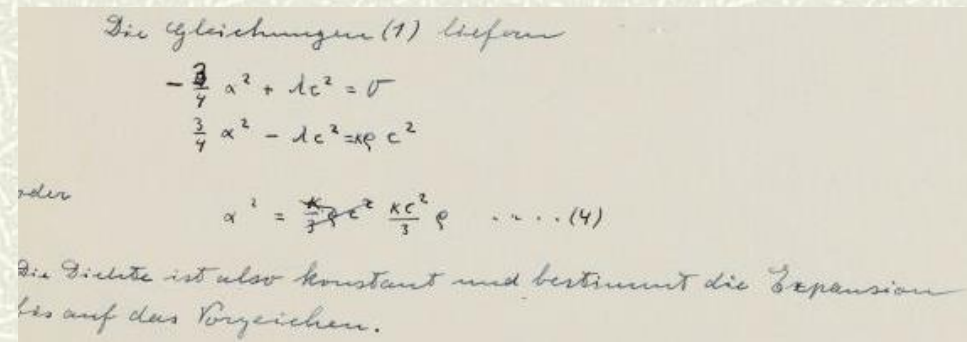 Die Gleichungen (1) liefern
- 3/4 α² + λc² = 0
3/4 α² - λc² = κρ c²
oder
α² = κc²/3 ρ . . . . . (4)
Die Dichte ist also konstant und bestimmt die Expansion
bis auf das Vorzeichen.